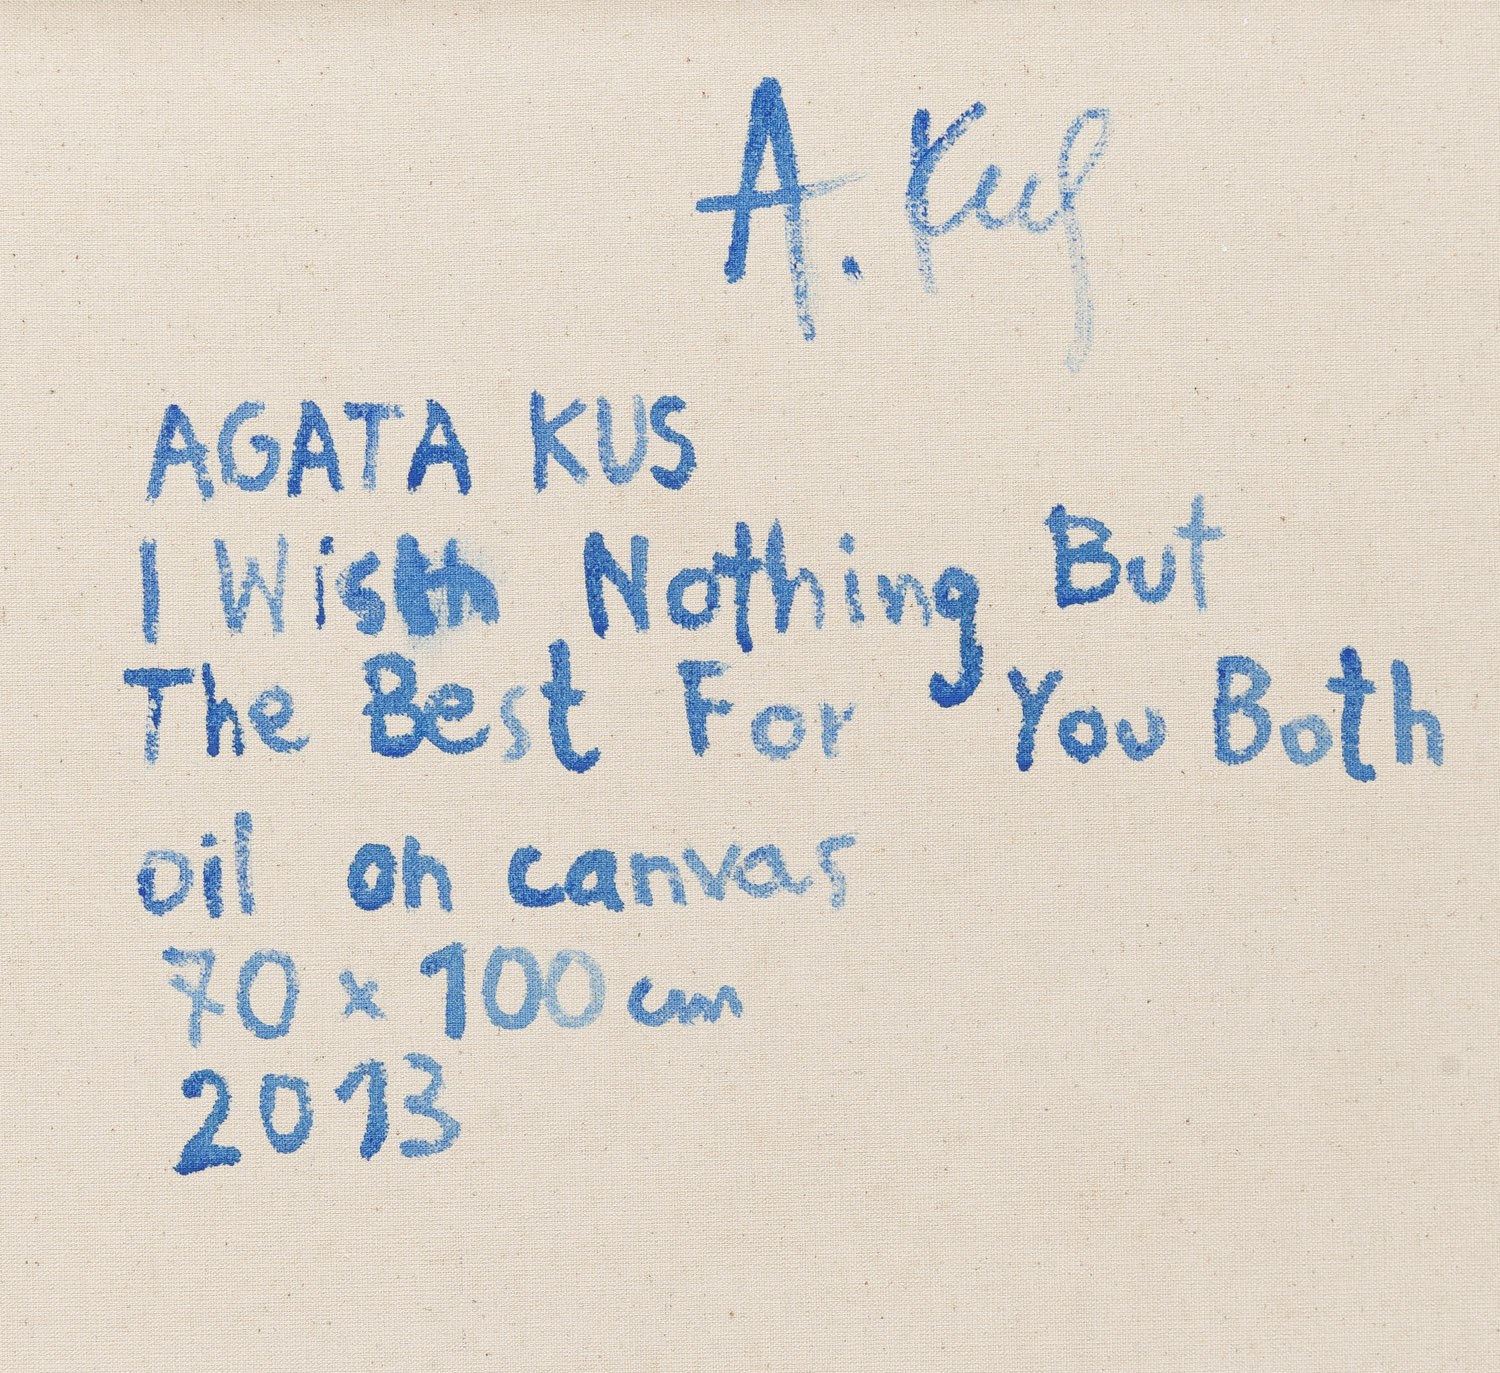 A. Kus
AGATA KUS
I Wish Nothing But
The Best For You Both
oil on canvas
70 x 100 cm
2013